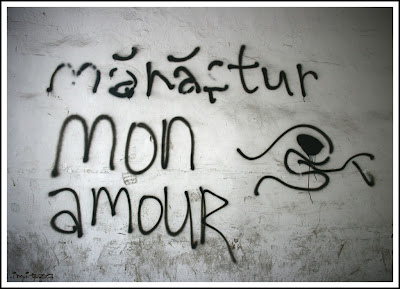 mănăştur
mon
amouR